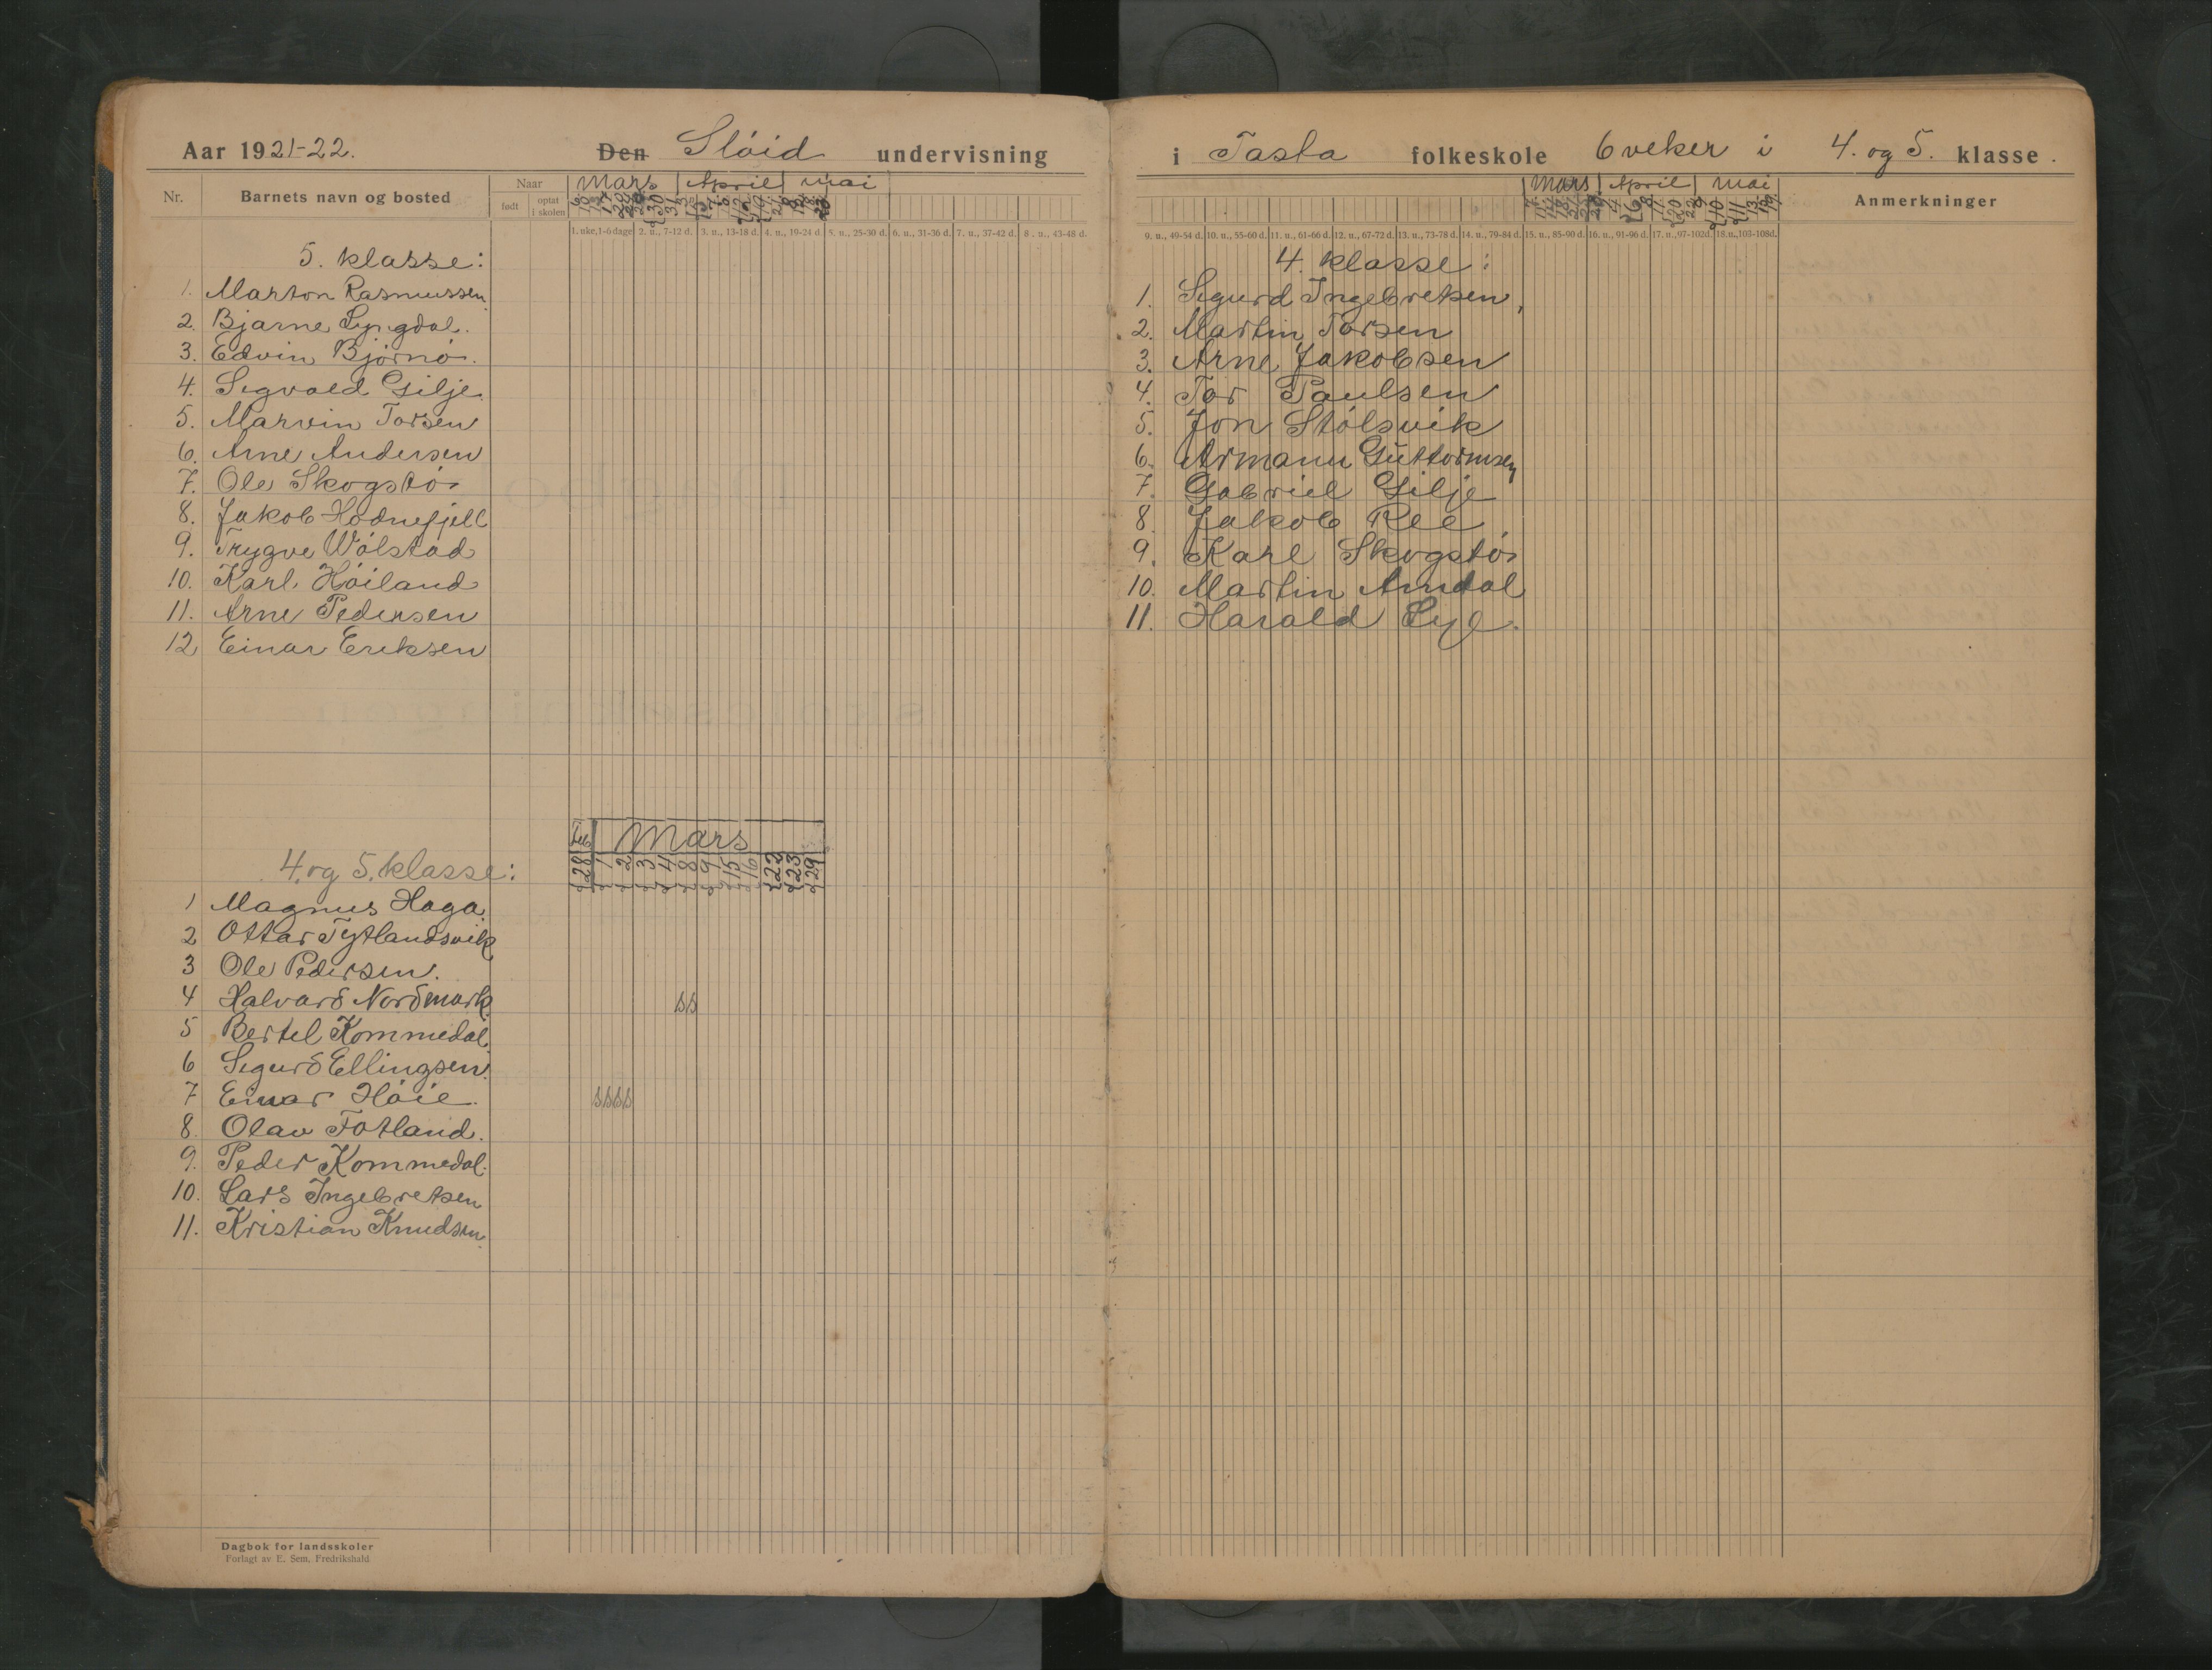 Aar 1921-22. Den Slöid undervisning
Nr. Barnets navn og bosted Naar født optat i skolen Mars April mai
1. uke, 1-6 dage 2. u., 7-12 d. 3. u., 13-18 d. 4. u., 19-24 d. 5. u., 25-30 d. 6. u., 31-36 d. 7. u., 37-42 d. 8. u., 43-48 d.
5. klasse:
1. Marton Rasmussen
2. Bjarne Lyngdal.
3. Edvin Björnö.
4. Sigvald Gilje.
5. Marvin Torsen
6. Arne Andersen
7. Ole Skogstö
8. Jakob Hodnefjell
9. Trygve Wölstad
10. Karl Höiland
11. Arne Pedersen
12 Einar Eriksen
Feb Mars
4. og 5. klasse: 28 1 2 3 4 8 9 15 16 22 23 29
1 Magnus Haga.
2 Ottar Tytlandsvik
3 Ole Pedersen.
4 Halvard Nordmark. s s
5 Bertel Kommedal.
6 Sigurd Ellingsen.
7 Einar Höie. s s s s
8. Olav Fotland.
9. Peder Kommedal.
10. Lars Ingebretsen
11. Kristian Knudsen.
Dagbok for landsskoler
Forlagt av E. Sem, Fredrikshald
i Tasta folkeskole 6 veker i 4. og 5. klasse.
Mars April mai Anmerkninger
9. u., 49-54 d. 10. u., 55-60 d. 11. u., 61-66 d. 12. u., 67-72 d. 13. u., 73-78 d. 14. u., 79-84 d. 15. u., 85-90 d. 16. u., 91-96 d. 17. u., 97-102d. 18.u.,103-108d.
4. klasse:
1. Sigurd Ingebretsen,
2. Martin Torsen
3. Arne Jakobsen
4. Tor Paulsen
5. Jon Stölsvik
6. Armann Guttormsen
7. Gabriel Gilje
8. Jakob Ree
9. Karl Skogstö
10. Martin Amdal
11. Harald Lye.